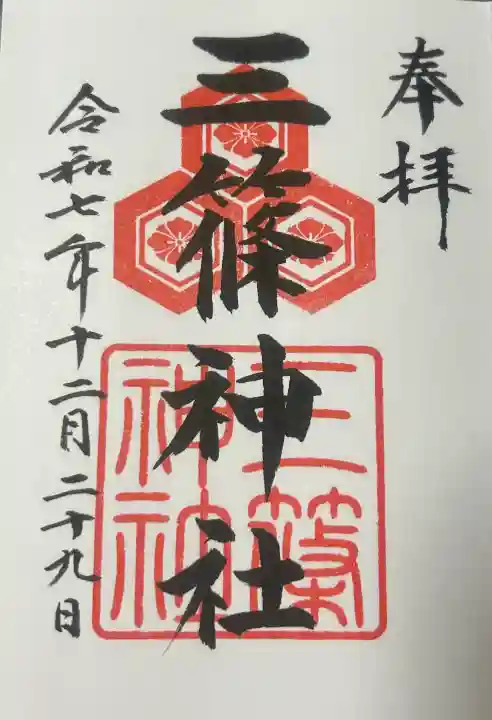 奉拝
三篠神社
三篠神社
令和七年十二月二十九日